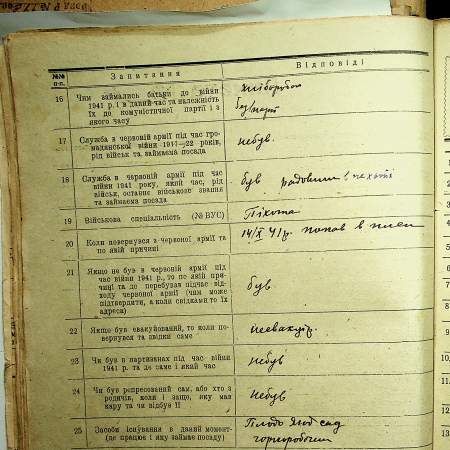 №№ п-п.
Запитання
Відповіді
16
Чим займались батьки до війни
1941 р. і в даний час та належність
їх до комуністичної партії і з
якого часу
хліборобом
17
Служба в червоній армії під час гро-
мадянської війни 1917—22 років,
рід військ та займаєма посада
небув.
18
Служба в червоній армії під час
війни 1941 року, який час, рід
військ, останнє військове звання
та займаєма посада
був радовим в пехоті
19
Військова спеціяльність (№ ВУС)
Піхота
20
Коли повернувся з червоної армії та
по якій причині
14/X 41р. попав в плен
21
Якщо не був в червоній армії під
час війни 1941 р., то по якій при-
чині та де перебував підчас від-
ходу червоної армії (чим може
підтвердити, а коли свідками то їх
адреса)
був
22
Якщо був евакуйований, то коли по-
вернувся та звідки саме
неевакуір.
23
Чи був в партизанах під час війни
1941 р. та де саме і який час
небув
24
Чи був репресований сам, або хто з
родичів, коли і защо, яку мав
кару та чи відбув її
небув
25
Засоби існування в даний момент-
(де працює і яку займає посаду)
Плодо Ягод сад
горноробочим